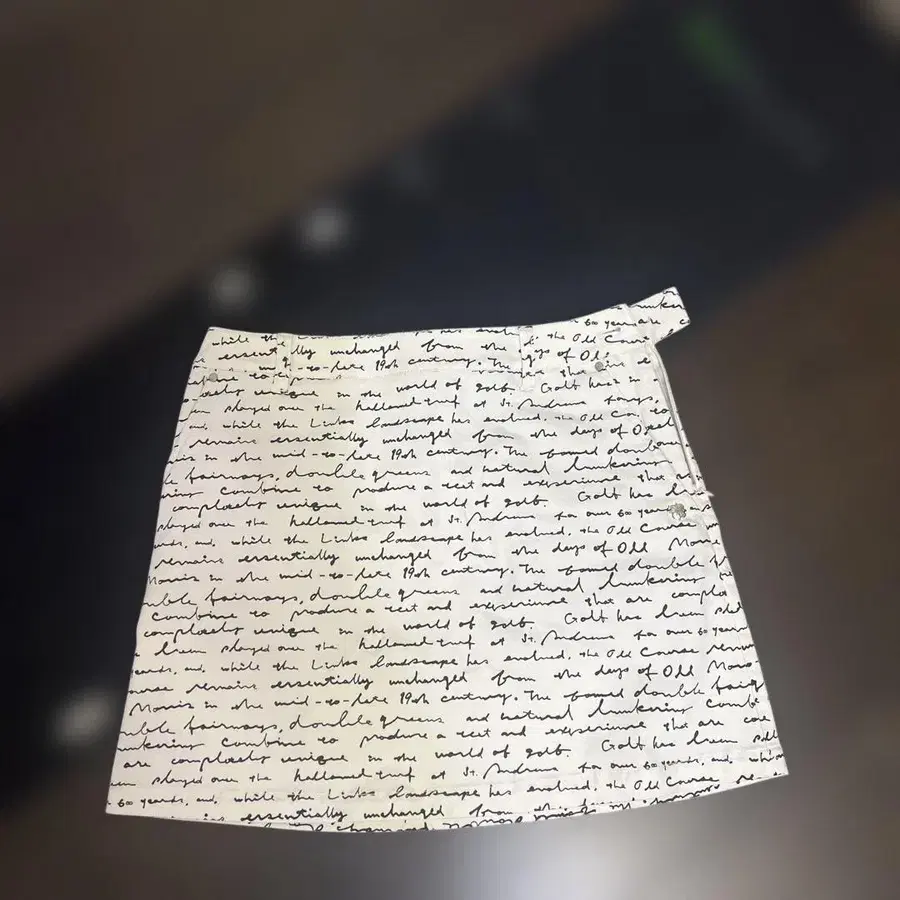 while the has
essentially unchanged from the the Old Course
mid-to-late 19th century. The days of Old
unique in the world of golf. Golf has
played over the hallowed turf at St. Andrews for
and, while the Links landscape has evolved, the Old
remains essentially unchanged from the days of Old
in the mid-to-late 19th century. The famed double
fairways, double greens and natural bunkering
combine to produce a test and experience that are
completely unique in the world of golf. Golf has been
played over the hallowed turf at St. Andrews for over 600 years
and, while the Links landscape has evolved, the Old Course
remains essentially unchanged from the days of Old
Morris in the mid-to-late 19th century. The famed double
fairways, double greens and natural bunkering
combine to produce a test and experience that are
completely unique in the world of golf. Golf has been
been played over the hallowed turf at St. Andrews for over 600 years
and, while the Links landscape has evolved, the Old Course
remains essentially unchanged from the days of Old
Morris in the mid-to-late 19th century. The famed double
fairways, double greens and natural bunkering
combine to produce a test and experience that are
are completely unique in the world of golf. Golf has been
played over the hallowed turf at St. Andrews for over 600 years, and,
600 years, and, while the Links landscape has evolved, the Old Course
essentially unchanged from